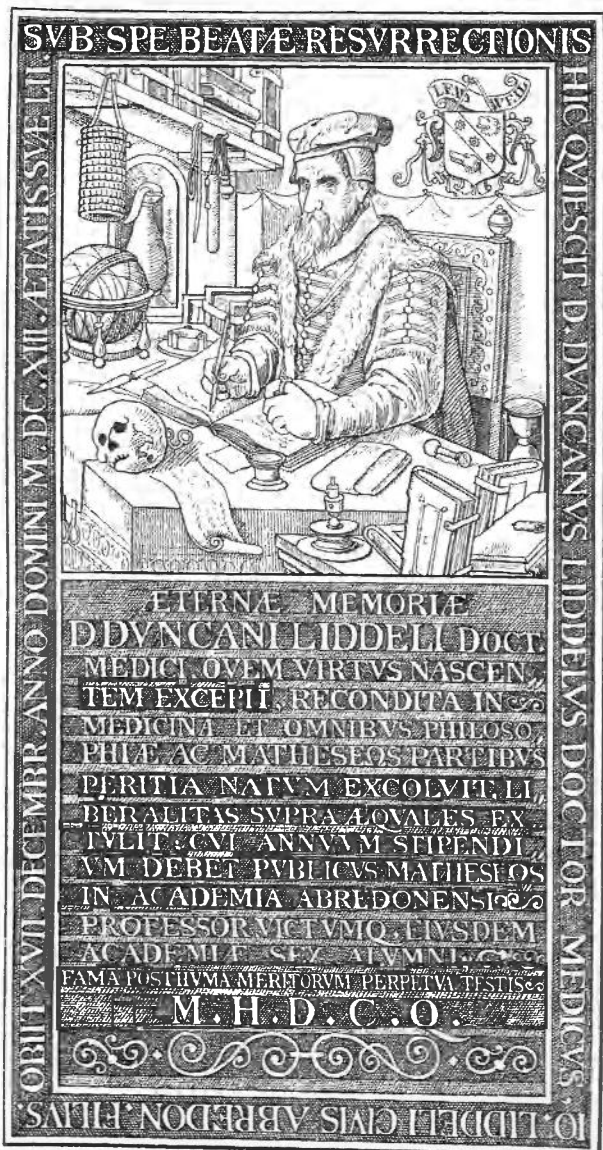 SVB SPE BEATÆ RESVRRECTIONIS
HIC QVIESCIT D. DVNCANVS LIDDELVS DOCTOR MEDICVS.
IO. LIDDELI CIVIS ABREDON. FILIVS.
OBIIT XVII. DECEMBR. ANNO DOMINI M.DC.XIII. ÆTATIS SVÆ LII.
ÆTERNÆ MEMORIÆ
D. DVNCANI LIDDELI DOCT.
MEDICI QVEM VIRTVS NASCEN„
TEM EXCEPIT, RECONDITA IN
MEDICINA ET OMNIBVS PHILOSO„
PHIÆ AC MATHESEOS PARTIBVS
PERITIA NATVM EXCOLVIT, LI„
BERALITAS SVPRA ÆQVALES EX„
TVLIT: CVI ANNVVM STIPENDI„
VM DEBET PVBLICVS MATHESEOS
IN ACADEMIA ABREDONENSI
PROFESSOR VICTVMQ. EIVSDEM
ACADEMIÆ SEX ALVMNI.
FAMA POSTHVMA MERITORVM PERPETVA TESTIS
M.H.D.C.O.